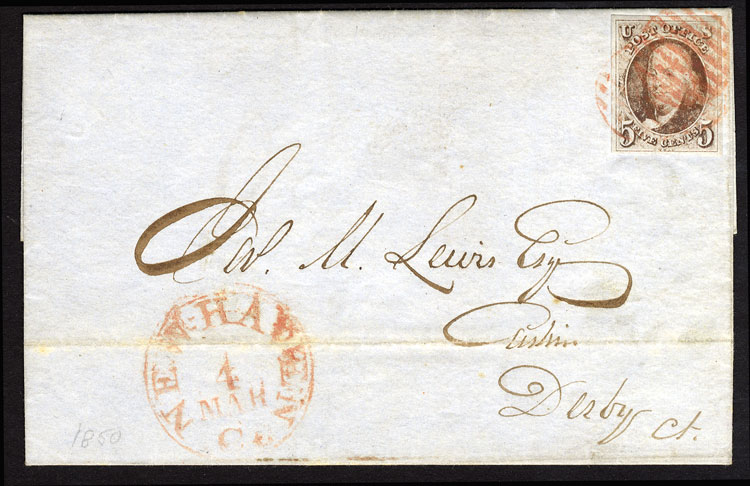 U S
POST OFFICE
5 FIVE CENTS 5
M. Lewis Esq
Derby Ct.
NEW-HAVEN
4
MAR
Ct.
1850